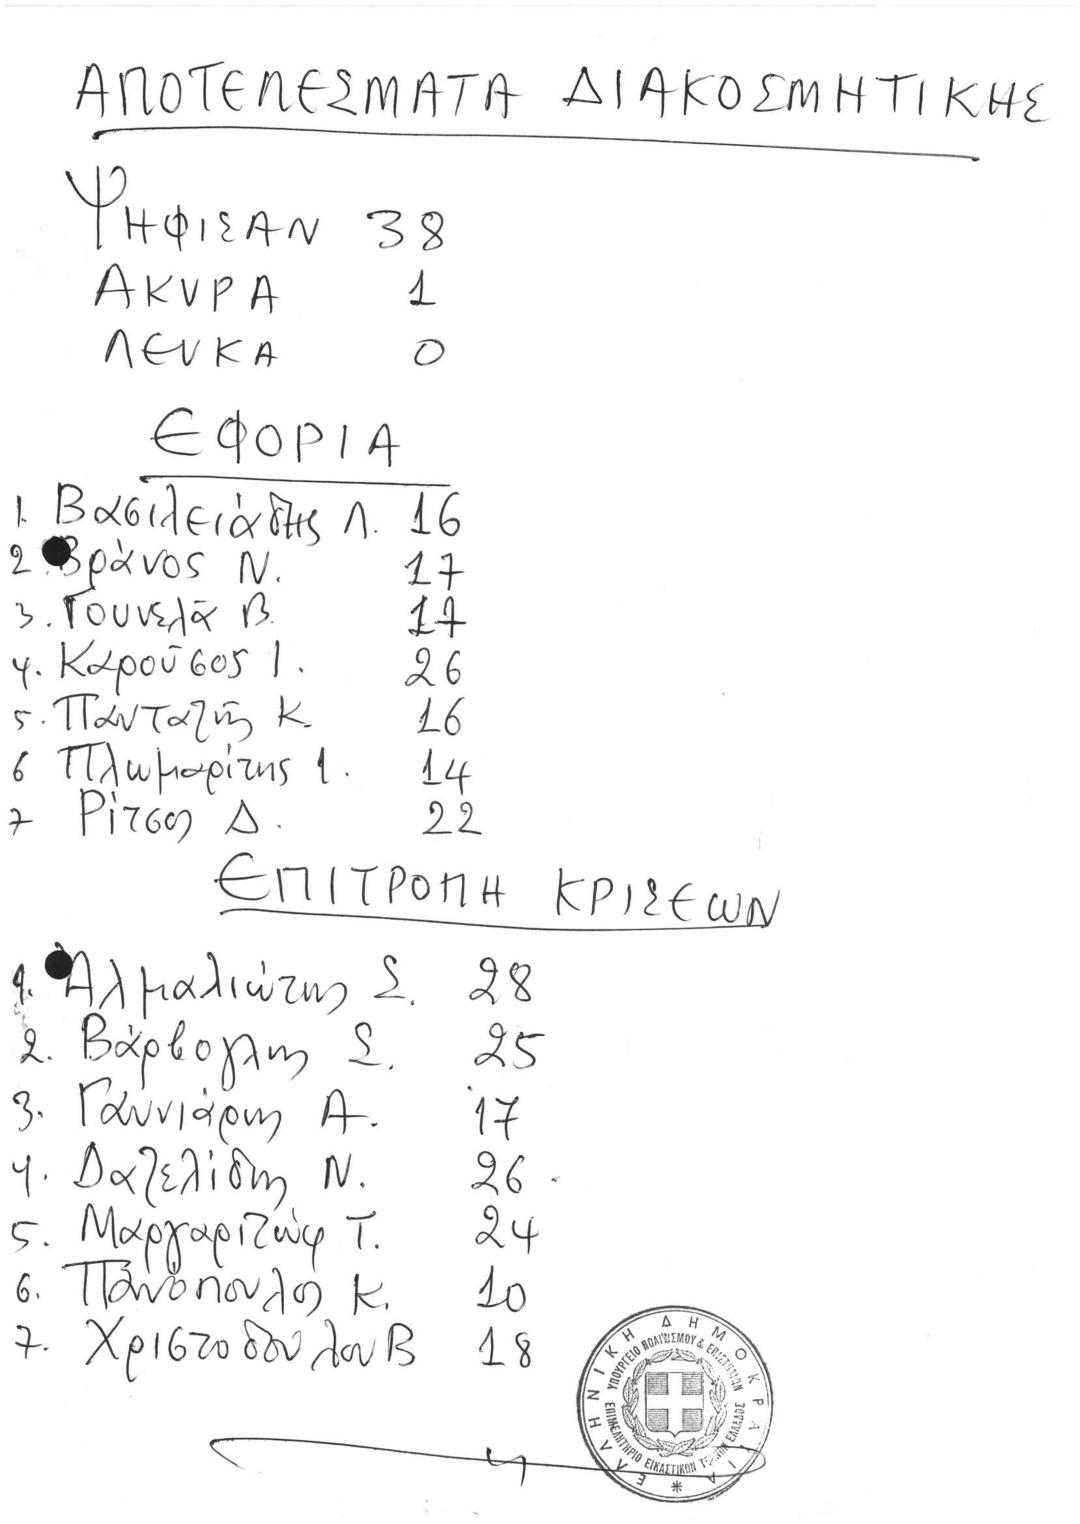 ΑΠΟΤΕΛΕΣΜΑΤΑ ΔΙΑΚΟΣΜΗΤΙΚΗΣ
ΨΗΦΙΣΑΝ 38
ΑΚΥΡΑ 1
ΛΕΥΚΑ 0
ΕΦΟΡΙΑ
1. Βασιλειάδης Λ. 16
2. Βράνος Ν. 17
3. Γουνελᾶ Β. 17
4. Καροῦσος Ι. 26
5. Πανταζῆς Κ. 16
6 Πλωμαρίτης Ι. 14
7 Ρίτσος Δ. 22
ΕΠΙΤΡΟΠΗ ΚΡΙΣΕΩΝ
1. Αλμαλιώτης Σ. 28
2. Βάρβογλης Σ. 25
3. Γαννιάρης Α. 17
4. Δατζελίδης Ν. 26
5. Μαργαριτώφ Τ. 24
6. Πανόπουλος Κ. 10
7. Χριστοδούλου Β 18
ΕΛΛΗΝΙΚΗ ΔΗΜΟΚΡΑΤΙΑ
ΥΠΟΥΡΓΕΙΟ ΠΟΛΙΤΙΣΜΟΥ & ΕΠΙΣΤΗΜΩΝ
ΕΠΙΜΕΛΗΤΗΡΙΟ ΕΙΚΑΣΤΙΚΩΝ ΤΕΧΝΩΝ ΕΛΛΑΔΟΣ